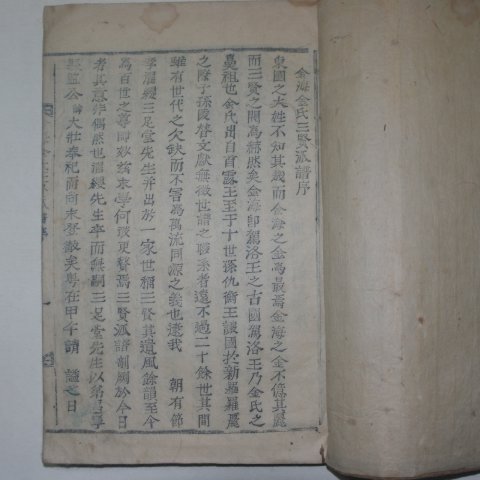 金海金氏三賢派譜序
東國之大姓不知其幾而金海之金爲最焉金海之金不億其麗
而三賢之閥爲赫然矣金海卽駕洛王之古國駕洛王乃金氏之
鼻祖也金氏出自首露王至于十世孫仇衡王讓國於新羅羅麗
之際子孫
文獻無徵世譜之
者遠不過二十餘世其間
雖有世代之欠缺而不害爲萬流同源之義也逮我 朝有節
孝濯纓三足堂先生幷出於一家世稱三賢其遺風餘韻至今
爲百世之尊師
末學何
更贅焉三賢派譜剞劂於今日
者其意非偶然也濯纓先生
而無嗣三足堂先生以
子
公
大壯奉祀而
矣粤在甲午請 諡之日